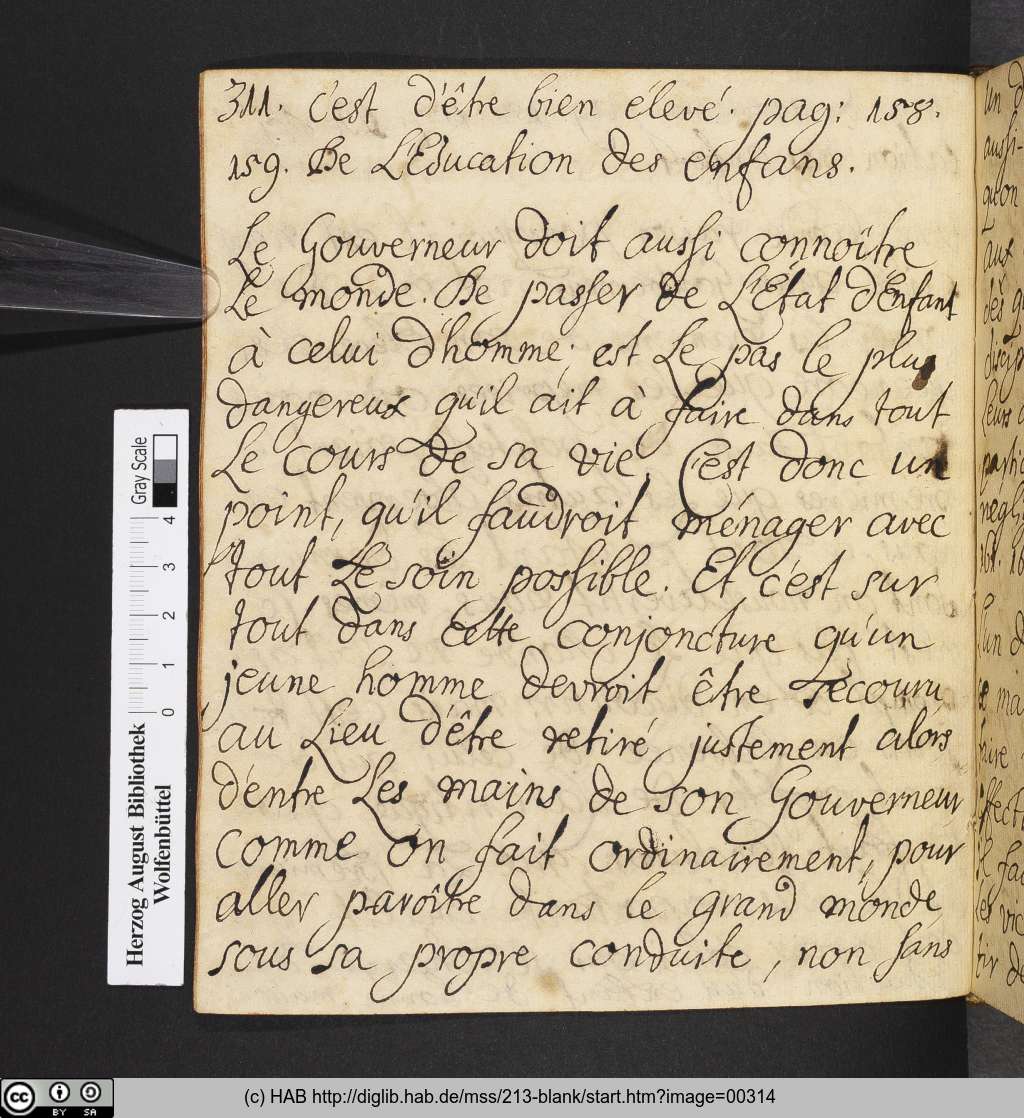 311. C'est d'être bien élevé. pag: 158.
159. De L'Education des enfans.
Le Gouverneur doit aussi connoître
Le monde. De passer de L'Etat d'Enfant
à celui d'homme, est Le pas le plus
dangereux qu'il ait à faire dans tout
Le cours de sa vie. C'est donc un
point, qu'il faudroit ménager avec
tout Le soin possible. Et c'est sur
tout dans cette conjoncture qu'un
jeune homme devroit être secouru
au Lieu d'être retiré justement alors
d'entre Les mains de son Gouverneur
comme on fait ordinairement, pour
aller paroître dans le grand monde
sous sa propre conduite, non sans
Gray Scale
4
3
2
1
0
Herzog August Bibliothek
Wolfenbüttel
cc BY SA
(c) HAB http://diglib.hab.de/mss/213-blank/start.htm?image=00314